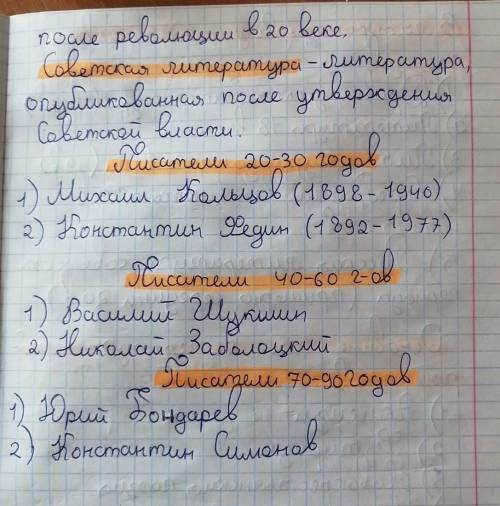 после революции в 20 веке.
Советская литература - литература,
опубликованная после утверждения
Советской власти.
Писатели 20-30 годов
1) Михаил Кольцов (1898 - 1940)
2) Константин Федин (1892 - 1977)
Писатели 40-60 г-ов
1) Василий Шукшин
2) Николай Заболоцкий
Писатели 70-90 годов
1) Юрий Бондарев
2) Константин Симонов